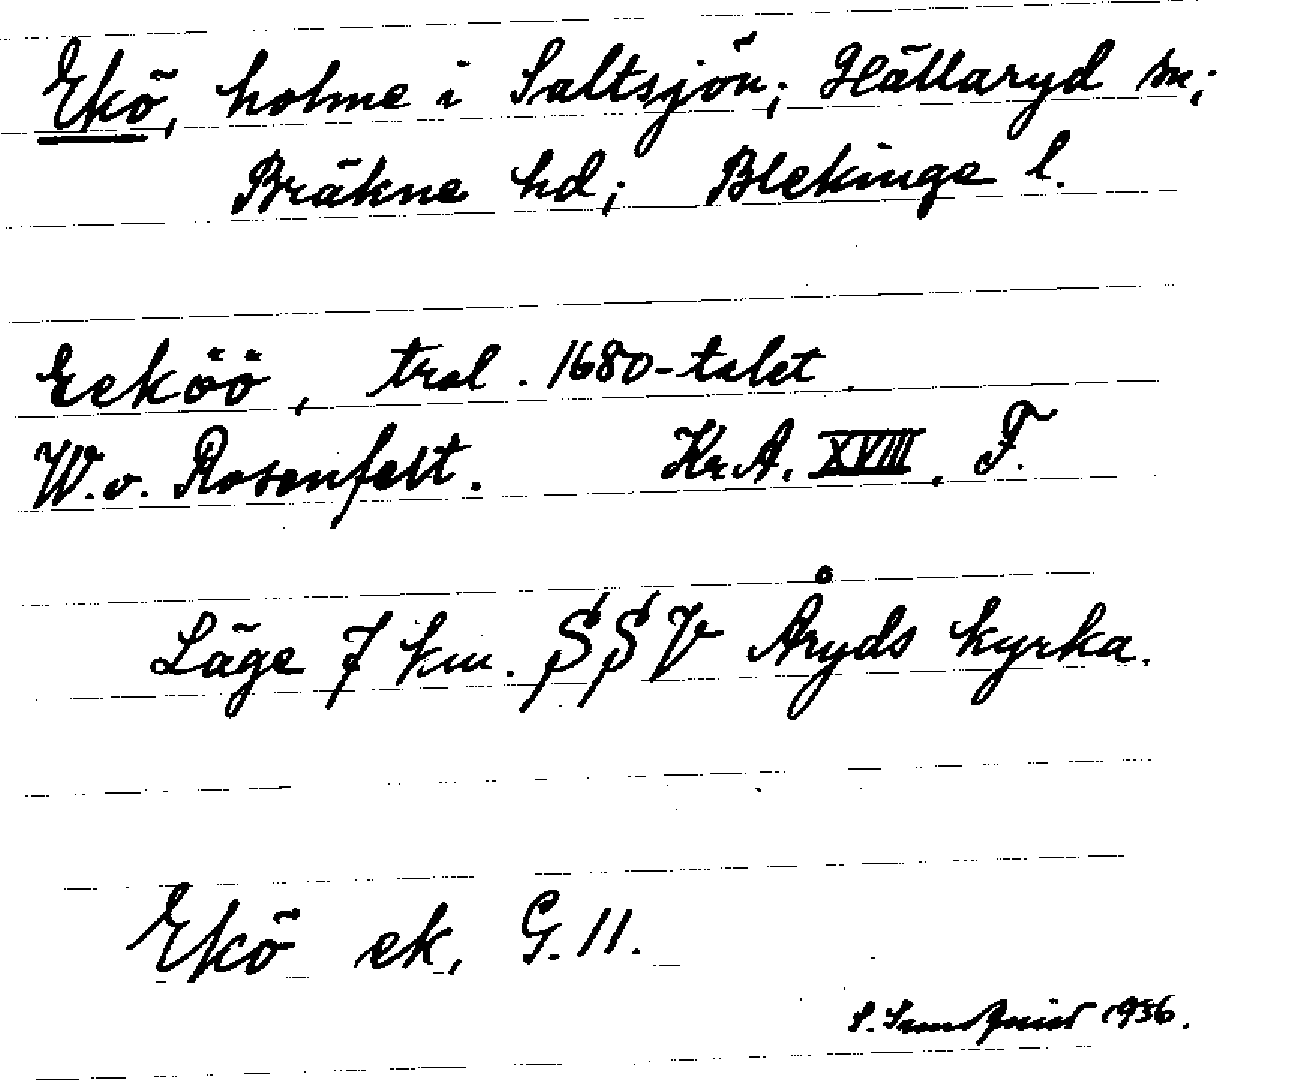 Ekö, holme i Saltsjön; Hällaryd sn;
Bräkne hd; Blekinge l.
Eeköö, trol. 1680-talet.
W. v. Rosenfelt. Kr.A. XVIII, F.
Läge 7 km. SSV Åryds kyrka.
Ekö ek, G. 11.
S. Sundquist 1936.